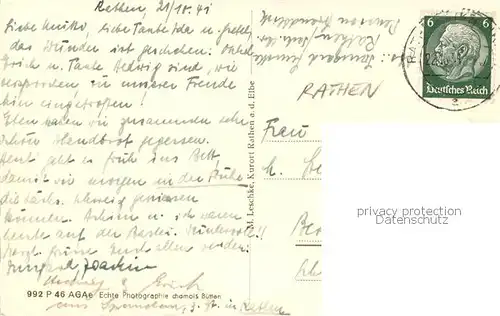 Rathen, 21/10.41
Liebe Mutti, Liebe Tante Ida u. Gretel,
das Wunder ist geschehen: Onkel
Erich u. Tante Hedwig sind, wie
versprochen, zu unserer Freude
hier eingetroffen!
Eben haben wir zusammen sehr
schön Abendbrot gegessen.
Heut geht es früh ins Bett,
damit wir morgen in der Frühe
die Sächs. Schweiz geniessen
können. Achim u. ich waren
heute auf der Bastei. Wundervoll!!
Herzl. Grüsse Euch allen von
Irmgard, Joachim
Hedwig u. Erich
aus Spandau, z. Zt. in Rathen
992 P 46 AGAe Echte Photographie chamois Bütten
M. Leschke, Kurort Rathen a. d. Elbe
Irmgard
Rathen
Pension
RATHEN
6 6
Deutsches Reich
Frau
privacy protection
Datenschutz